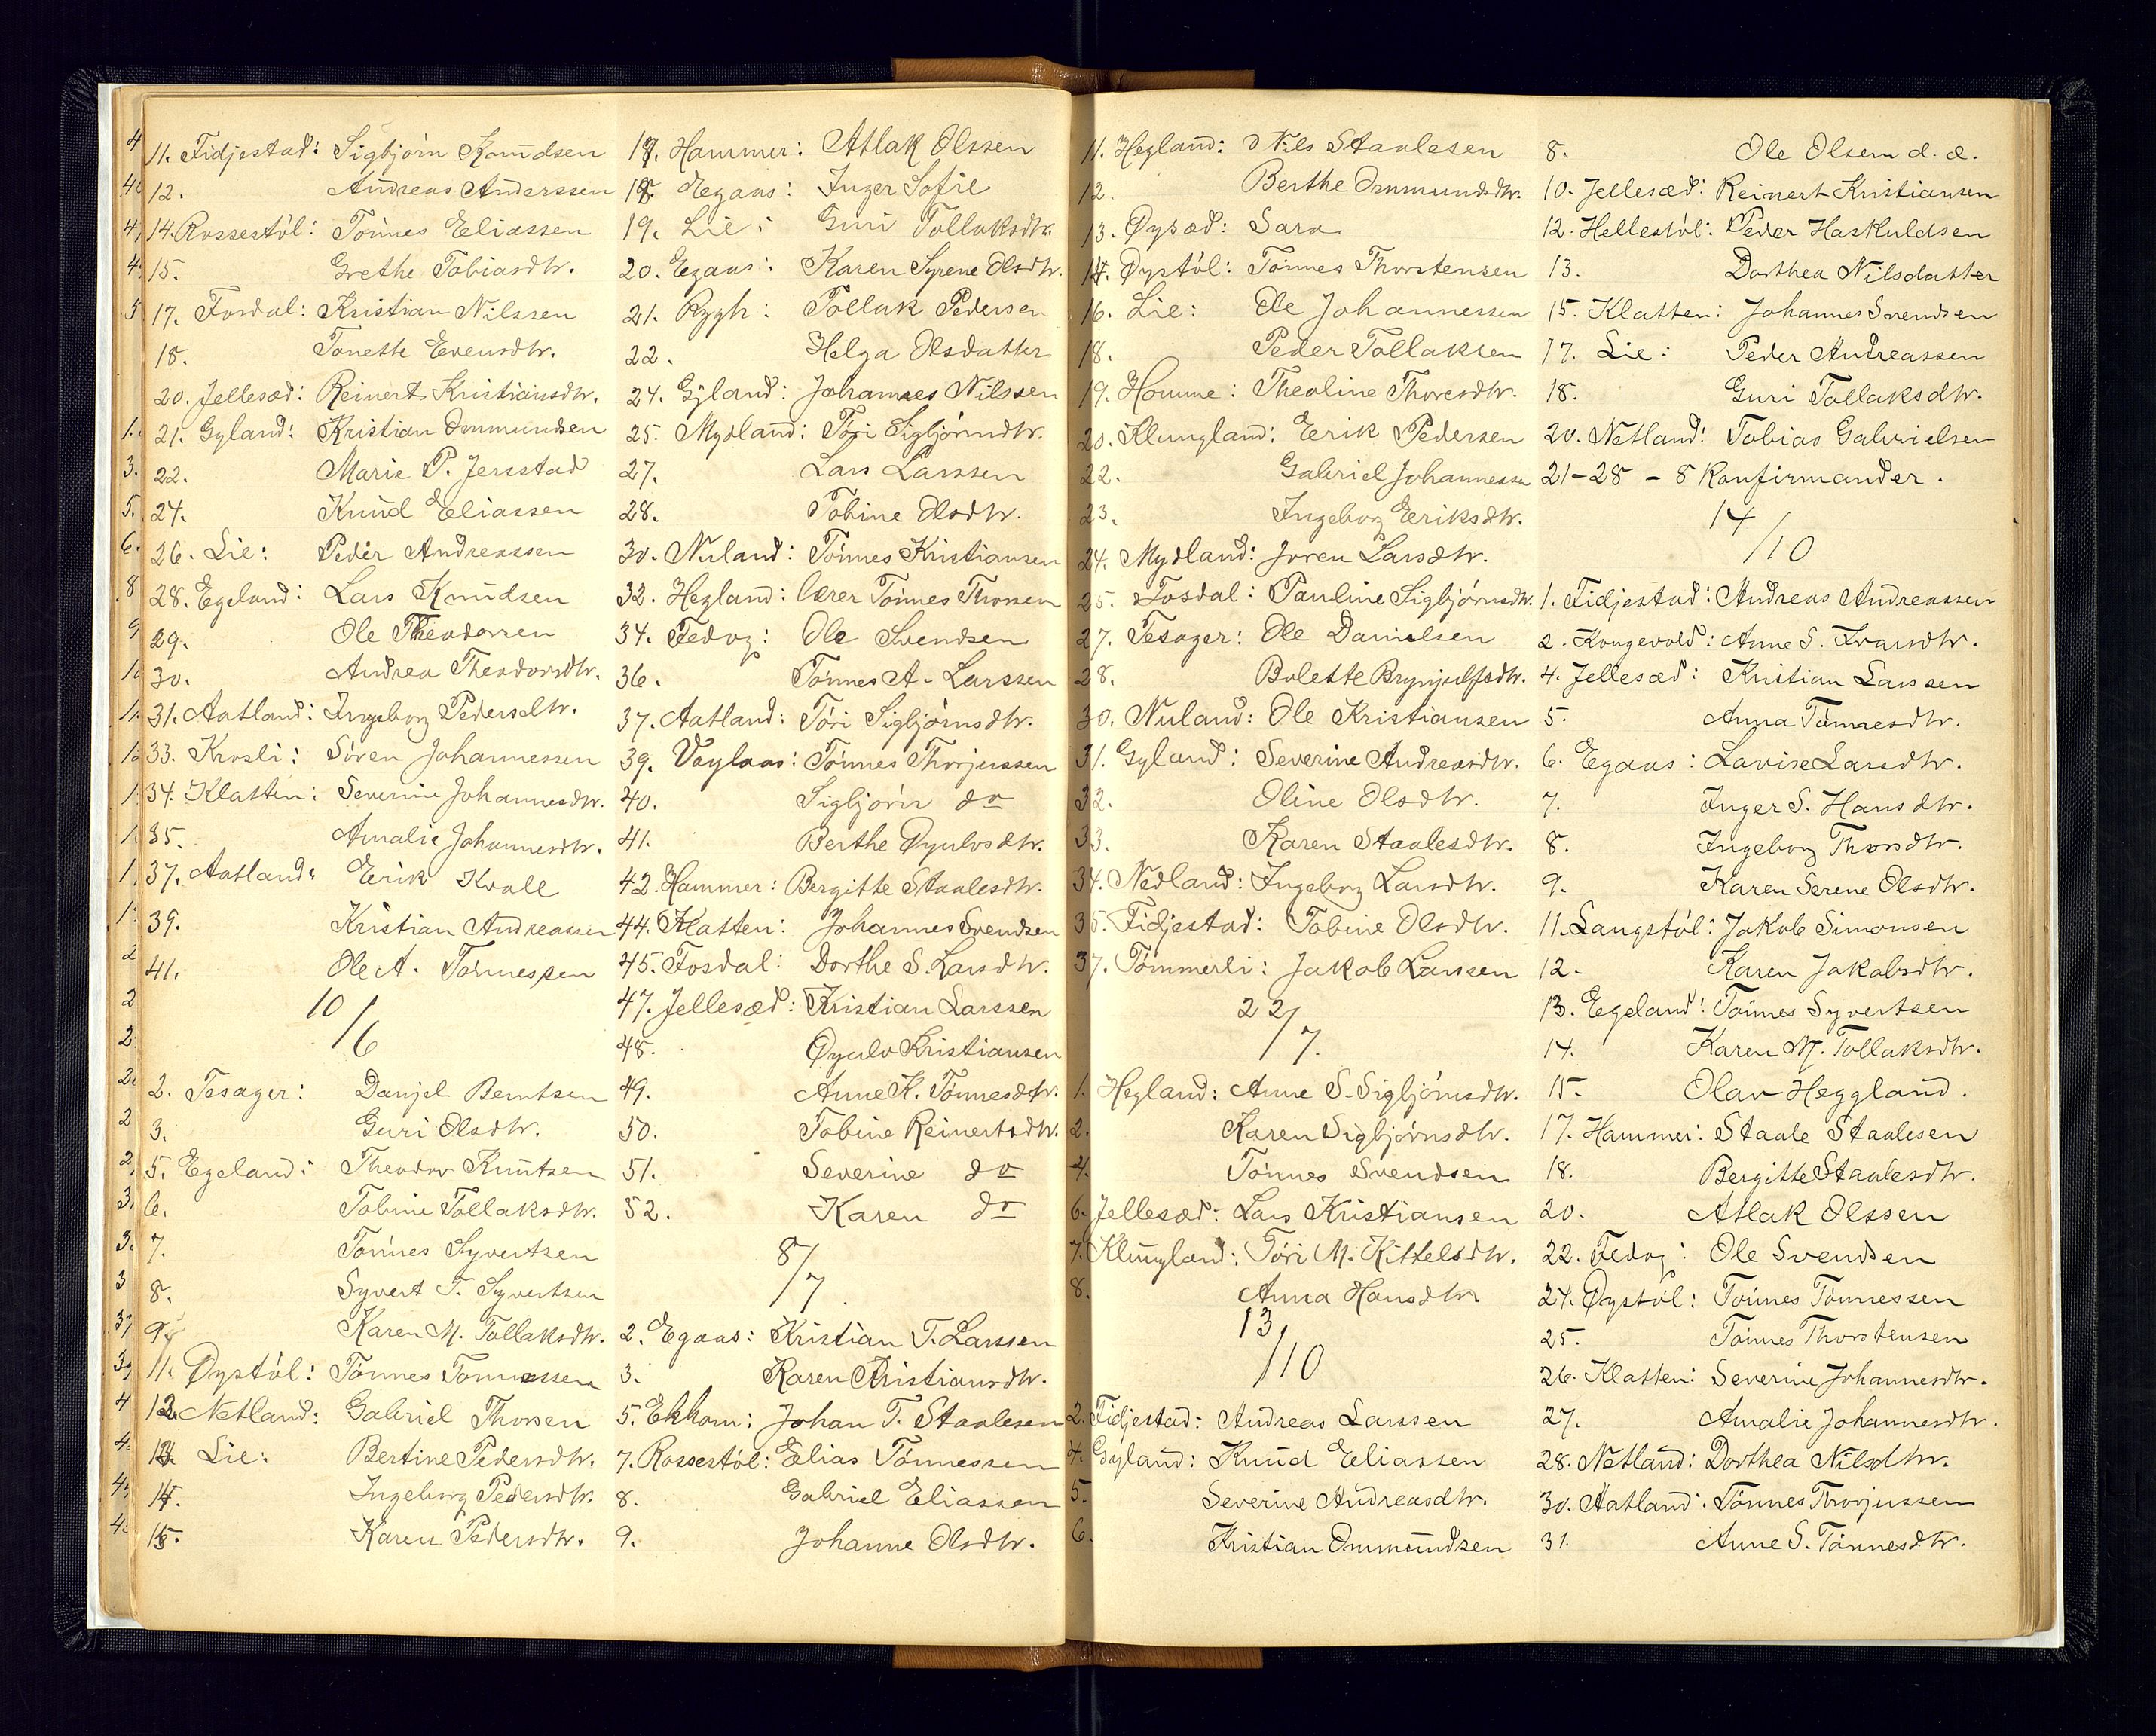 11. Fidjestad: Sigbjörn Knudsen
12. Andreas Anderssen
14. Rossestöl: Tönnes Eliassen
15. Grethe Tobiasdtr.
17. Fosdal: Kristian Nilssen
18. Tonette Evensdtr.
20. Jellesæd: Reinert Kristiansdtr.
21. Gyland: Kristian Ommundsen
22. Marie P. Jerstad
24. Knud Eliassen
26. Lie: Peder Andreassen
28. Egeland: Lars Knudsen
29. Ole Theodorsen
30. Andrea Theodorsdtr.
31. Aatland: Ingeborg Pedersdtr.
33. Krosli: Sören Johannessen
34. Klatten: Severine Johannesdtr.
35. Amalie Johannesdtr.
37. Aatland: Erik Kvale
39. Kristian Andreassen
41. Ole A. Tönnessen
10/6
2. Tesager: Danjel Berntsen
3. Guri Olsdtr.
5. Egeland: Theodor Knutsen
6. Tobine Tollaksdtr.
7. Tönnes Syvertsen
8. Syvert T. Syvertsen
9. Karen M. Tollaksdtr.
11. Øystöl: Tönnes Tönnessen
12. Netland: Gabriel Thorsen
13. Lie: Bertine Pedersdtr.
14. Ingeborg Pedersdtr.
15. Karen Pedersdtr.
17. Hammer: Atlak Olssen
18. Egaas: Inger Sofie
19. Lie: Guri Tollaksdtr.
20. Egaas: Karen Syrene Olsdtr.
21. Rygh: Tollak Pedersen
22. Helga Olsdatter
24. Gyland: Johannes Nilssen
25. Mydland: Töri Sigbjörnsdtr.
27. Lars Larssen
28. Tobine Olsdtr.
30. Nuland: Tönnes Kristiansen
32. Hegland: Tönnes Thorsen
34. Fedog: Ole Svendsen
36. Tönnes A. Larssen
37. Aatland: Töri Sigbjörnsdtr.
39. Vaglaas: Tönnes Thorjussen
40. Sigbjörn do
41. Berthe Øyulvsdtr.
42. Hammer: Bergitte Staalesdtr.
44. Klatten: Johannes Svendsen
45. Fosdal: Dorthe S. Larsdtr.
47. Jellesæd: Kristian Larssen
48. Øyulv Kristiansen
49. Anne K. Tönnesdtr.
50. Tobine Reinertsdtr.
51. Severine do
52. Karen do
8/7
2. Egaas: Kristian T. Larssen
3. Karen Kristiansdtr.
5. Ekhom: Johan T. Staalesen
7. Rossestöl: Elias Tönnessen
8. Gabriel Eliassen
9. Johanne Olsdtr.
11. Hegland: Nils Staalesen
12. Berthe Ommundsdtr.
13. Øysæd: Sara
14. Øystöl: Tönnes Thorstensen
16. Lie: Ole Johannessen
18. Peder Tollaksen
19. Homme: Theoline Thoresdtr.
20. Klungland: Eerik Pedersen
22. Gabriel Johannessen
23. Ingeborg Eeriksdtr.
24. Mydland: Joren Larsdtr.
25. Fosdal: Pauline Sigbjörnsdtr.
27. Tesager: Ole Danielsen
28. Bolette Brynjulfsdtr.
30. Nuland: Ole Kristiansen
31. Gyland: Severine Andreasdtr.
32. Oline Olsdtr.
33. Karen Staalesdtr.
34. Nedland: Ingeborg Larsdtr.
35. Fidjestad: Tobine Olsdtr.
37. Tömmerli: Jakob Larssen
22/7.
1. Hegland: Anne S. Sigbjörnsdtr.
2. Karen Sigbjörnsdtr.
4. Tönnes Svendsen
6. Jellesæd: Lars Kristiansen
7. Klungland: Töri M. Kittelsdtr.
8. Anna Hansdtr.
13/10
2. Fidjestad: Andreas Larssen
4. Gyland: Knud Eliassen
5. Severine Andreasdtr.
6. Kristian Ommundsen
8. Ole Olsen d. æ.
10. Jellesæd: Reinert Kristiansen
12. Hellestöl: Peder Haskuldsen
13. Dorthea Nilsdatter
15. Klatten: Johannes Svendsen
17. Lie: Peder Andreassen
18. Guri Tollaksdtr.
20. Netland: Tobias Gabrielsen
21-28 - 8 Konfirmander.
14/10
1. Fidjestad: Andreas Andreassen
2. Kongevold: Anne S. Ivarsdtr.
4. Jellesæd: Kristian Larssen
5. Anna Tönnesdtr.
6. Egaas: Lovise Larsdtr.
7. Inger S. Hansdtr.
8. Ingeborg Thorsdtr.
9. Karen Serene Olsdtr.
11. Langstöl: Jakob Simonsen
12. Karen Jakobsdtr.
13. Egeland: Tönnes Syvertsen
14. Karen M. Tollaksdtr.
15. Olav Heggland.
17. Hammer: Staale Staalesen
18. Bergitte Staalesdtr.
20. Atlak Olssen
22. Fedog: Ole Svendsen
24. Øystöl: Tönnes Tönnessen
25. Tönnes Thorstensen
26. Klatten: Severine Johannesdtr.
27. Amalie Johannesdtr.
28. Netland: Dorthea Nilsdtr.
30. Aatland: Tönnes Thorjussen
31. Anne S. Tönnesdtr.